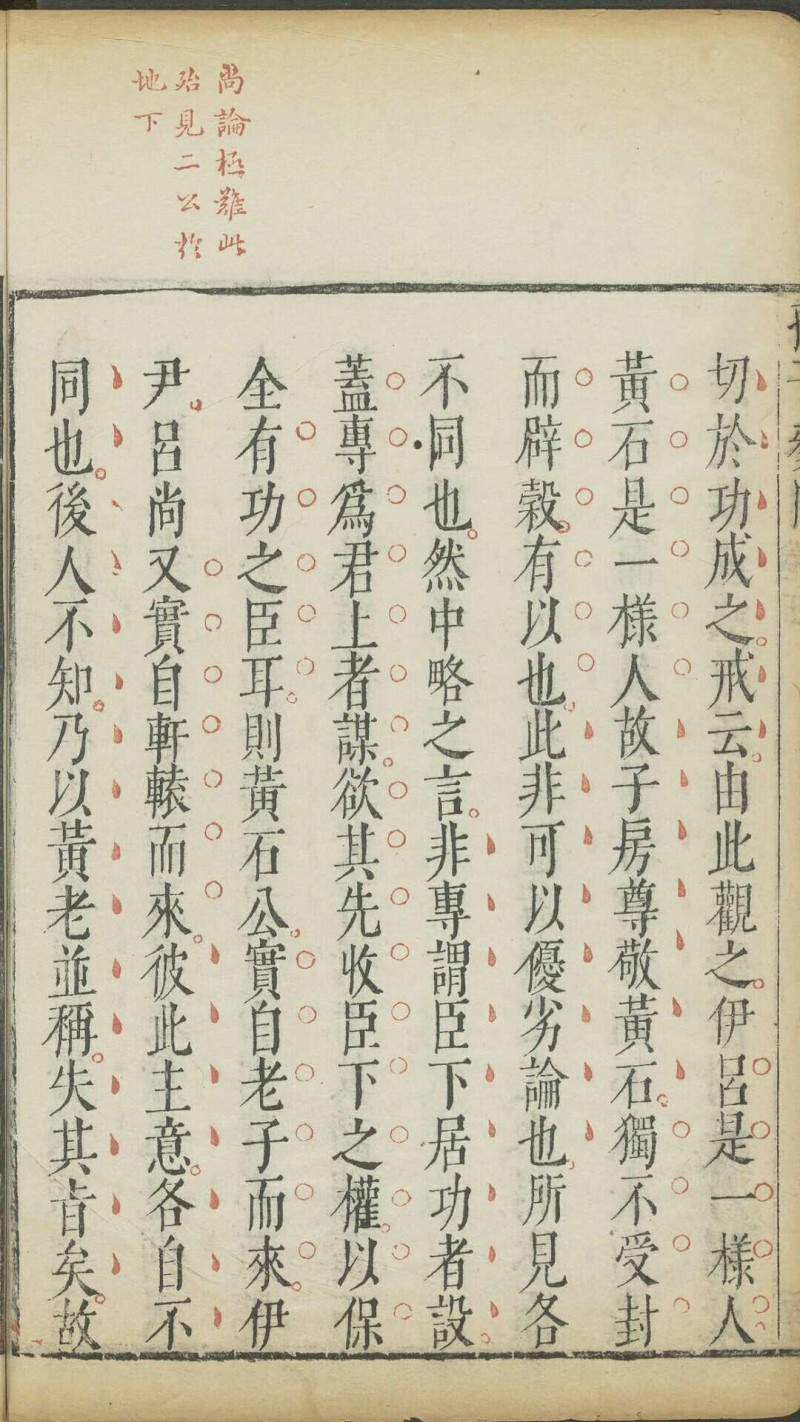 尚論極難此
殆見二公於
地下
切於功成之戒云由此觀之伊呂是一樣人
黃石是一樣人故子房尊敬黃石獨不受封
而辟穀有以也此非可以優劣論也所見各
不同也然中略之言非專謂臣下居功者設
蓋專爲君上者謀欲其先收臣下之權以保
全有功之臣耳則黃石公實自老子而來伊
尹呂尚又實自軒轅而來彼此主意各自不
同也後人不知乃以黃老並稱失其旨矣故